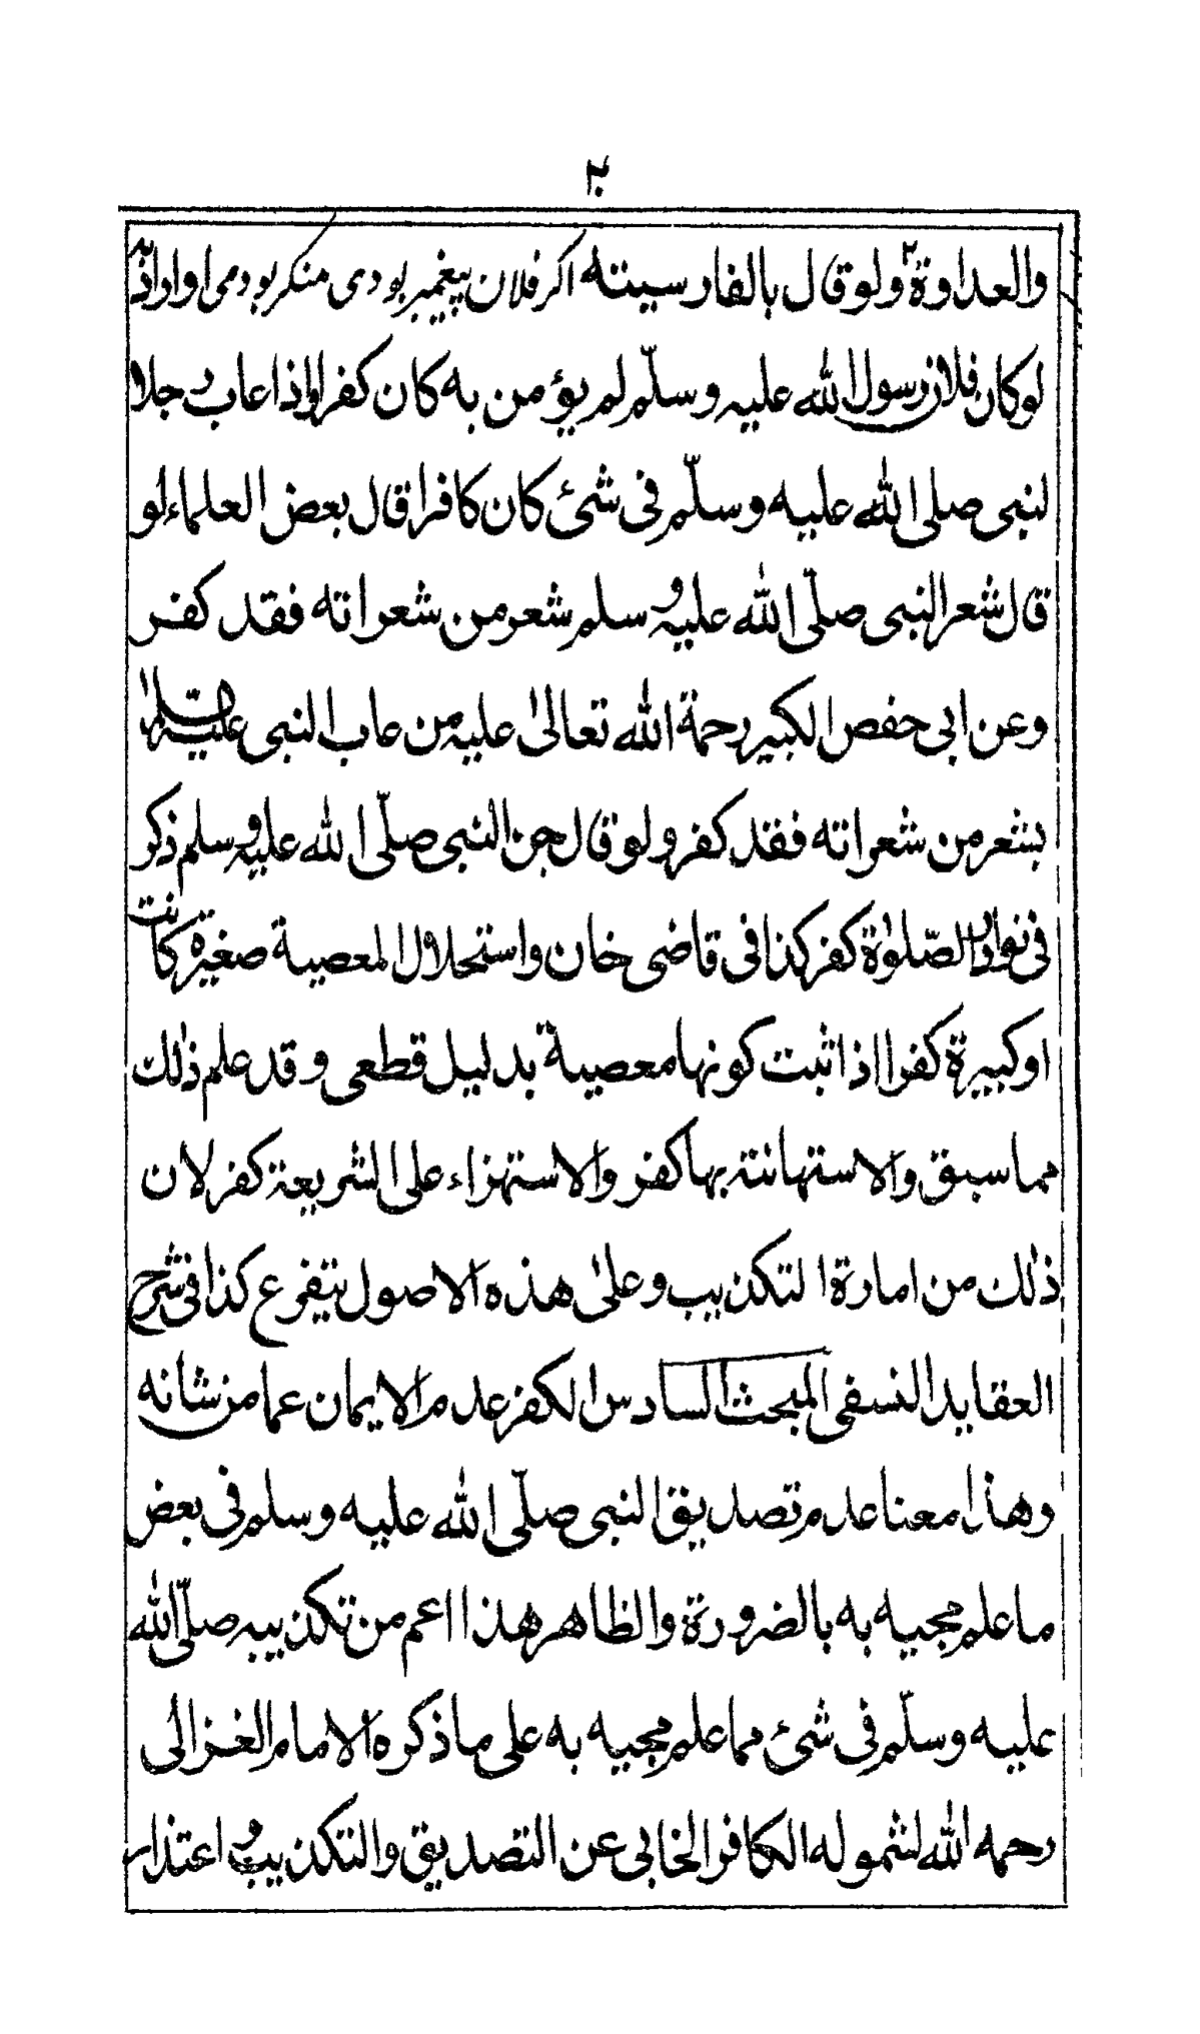 ٢٠
والعداوة ولو قال بالفارسيته اكر فلان پيغمبر بودى منكر بودمى اواراد به
لوكان فلان رسول الله عليه وسلّم لم يؤمن به كان كفرا واذا عاب رجلا
لنبى صلى الله عليه وسلّم فى شئ كان كافرا قال بعض العلماء لو
قال شعر النبى صلّى الله عليه وسلم شعر من شعراته فقد كفر
وعن ابى حفص الكبير رحمة الله تعالىٰ عليه من عاب النبى عليه السلام
بشعر من شعراته فقد كفر ولو قال جن النبى صلّى الله عليه وسلم ذكر
فى نوادر الصّلوٰة كفر كذا فى قاضى خان واستحلال المعصية صغيرة كانت
اوكبيرة كفر ااذا ثبت كونها معصية بدليل قطعى وقد علم ذٰلك
مما سبق والاستهانته بها كفر والاستهزاء على الشريعة كفر لان
ذٰلك من امارة التكذيب وعلىٰ هذه الاصول يتفرع كذا فى شرح
العقايد النسفى المبحث السادس الكفر عدم الايمان عما من شانه
وهذا معنا عدم تصديق النبى صلّى الله عليه وسلم فى بعض
ما علم مجيه به بالضرورة والظاهر هذا اعم من تكذيبه صلّى الله
عليه وسلّم فى شئ مما علم مجيه به على ما ذكره الامام الغزالى
رحمه الله لشموله الكافر الخابى عن التصديق والتكذيب واعتذار